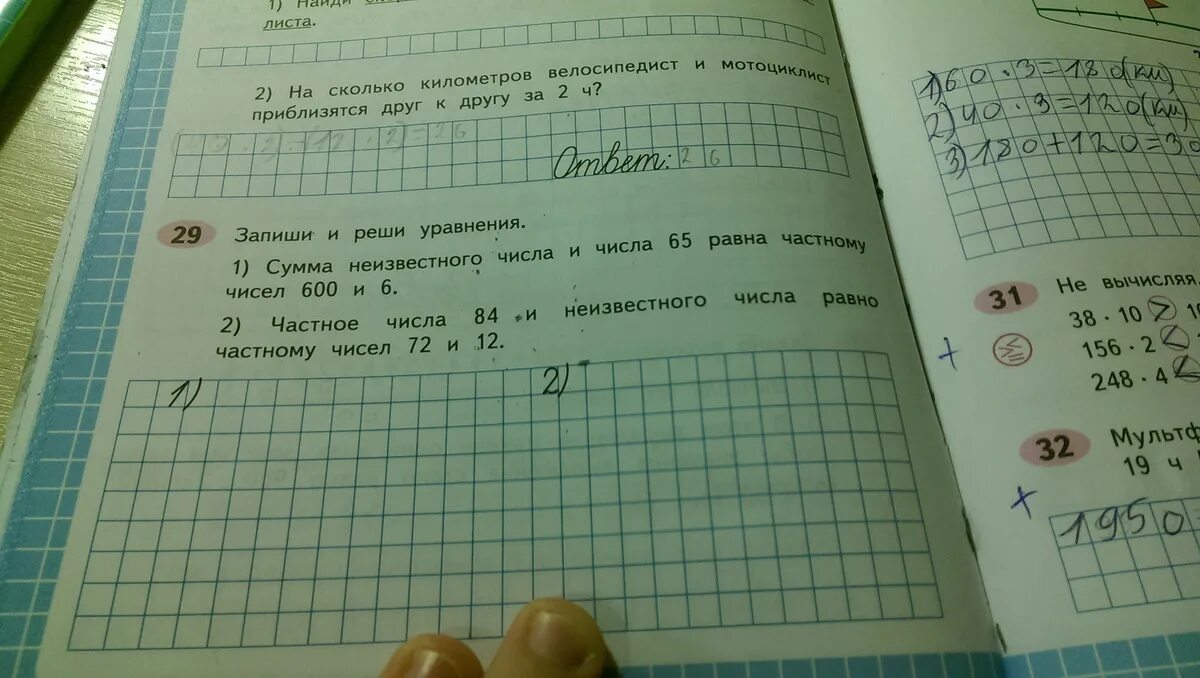 1) Найди
листа.
2) На сколько километров велосипедист и мотоциклист
приблизятся друг к другу за 2 ч?
· 2) = 26
Ответ: 26
29 Запиши и реши уравнения.
1) Сумма неизвестного числа и числа 65 равна частному
чисел 600 и 6.
2) Частное числа 84 и неизвестного числа равно
частному чисел 72 и 12.
1) 2)
1) 60 · 3 = 180 (км)
2) 40 · 3 = 120 (км)
3) 180 + 120 = 30
31 Не вычисляя,
38 · 10 > 1
156 · 2 <
248 · 4 <
32 Мультф
19 ч
1950